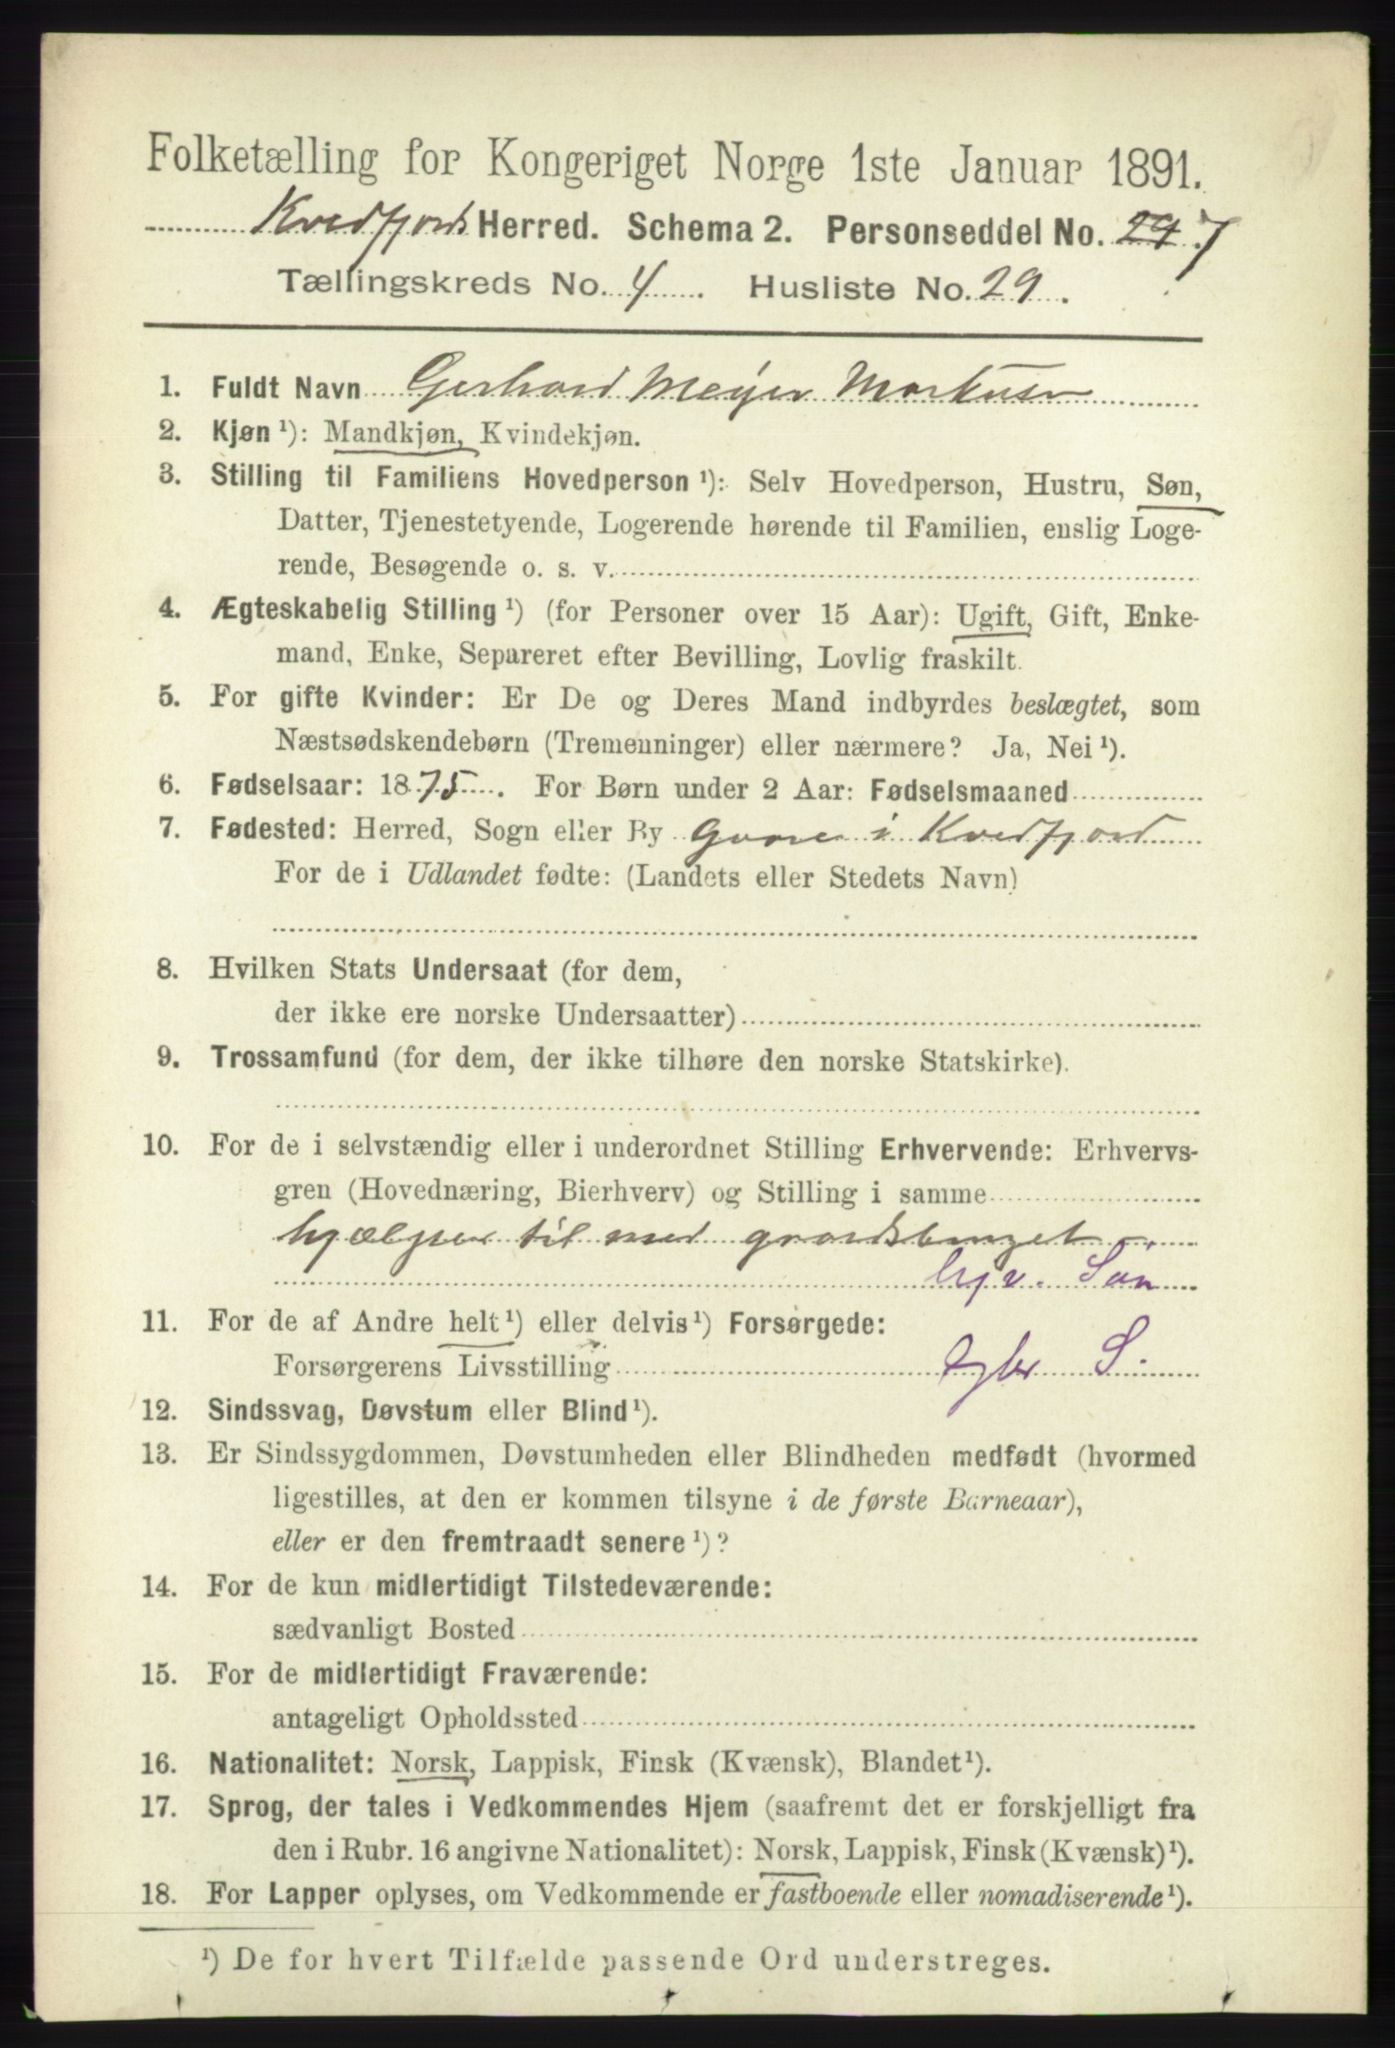 Folketælling for Kongeriget Norge 1ste Januar 1891.
Kvedfjords Herred. Schema 2. Personseddel No. 29 7
Tællingskreds No. 4 Husliste No. 29.
1. Fuldt Navn Gerhard Meyer Markusen
2. Kjøn ¹): Mandkjøn, Kvindekjøn.
3. Stilling til Familiens Hovedperson ¹): Selv Hovedperson, Hustru, Søn,
Datter, Tjenestetyende, Logerende hørende til Familien, enslig Loge-
rende, Besøgende o. s. v.
4. Ægteskabelig Stilling ¹) (for Personer over 15 Aar): Ugift, Gift, Enke-
mand, Enke, Separeret efter Bevilling, Lovlig fraskilt.
5. For gifte Kvinder: Er De og Deres Mand indbyrdes beslægtet, som
Næstsødskendebørn (Tremenninger) eller nærmere? Ja, Nei ¹).
6. Fødselsaar: 1875. For Børn under 2 Aar: Fødselsmaaned
7. Fødested: Herred, Sogn eller By i Kvedfjord
For de i Udlandet fødte: (Landets eller Stedets Navn)
8. Hvilken Stats Undersaat (for dem,
der ikke ere norske Undersaatter)
9. Trossamfund (for dem, der ikke tilhøre den norske Statskirke).
10. For de i selvstændig eller i underordnet Stilling Erhvervende: Erhvervs-
gren (Hovednæring, Bierhverv) og Stilling i samme
hjælper til med gaardsbruget
Søn
11. For de af Andre helt ¹) eller delvis ¹) Forsørgede:
Forsørgerens Livsstilling S.
12. Sindssvag, Døvstum eller Blind ¹).
13. Er Sindssygdommen, Døvstumheden eller Blindheden medfødt (hvormed
ligestilles, at den er kommen tilsyne i de første Barneaar),
eller er den fremtraadt senere ¹)?
14. For de kun midlertidigt Tilstedeværende:
sædvanligt Bosted
15. For de midlertidigt Fraværende:
antageligt Opholdssted
16. Nationalitet: Norsk, Lappisk, Finsk (Kvænsk), Blandet ¹).
17. Sprog, der tales i Vedkommendes Hjem (saafremt det er forskjelligt fra
den i Rubr. 16 angivne Nationalitet): Norsk, Lappisk, Finsk (Kvænsk) ¹).
18. For Lapper oplyses, om Vedkommende er fastboende eller nomadiserende ¹).
¹) De for hvert Tilfælde passende Ord understreges.